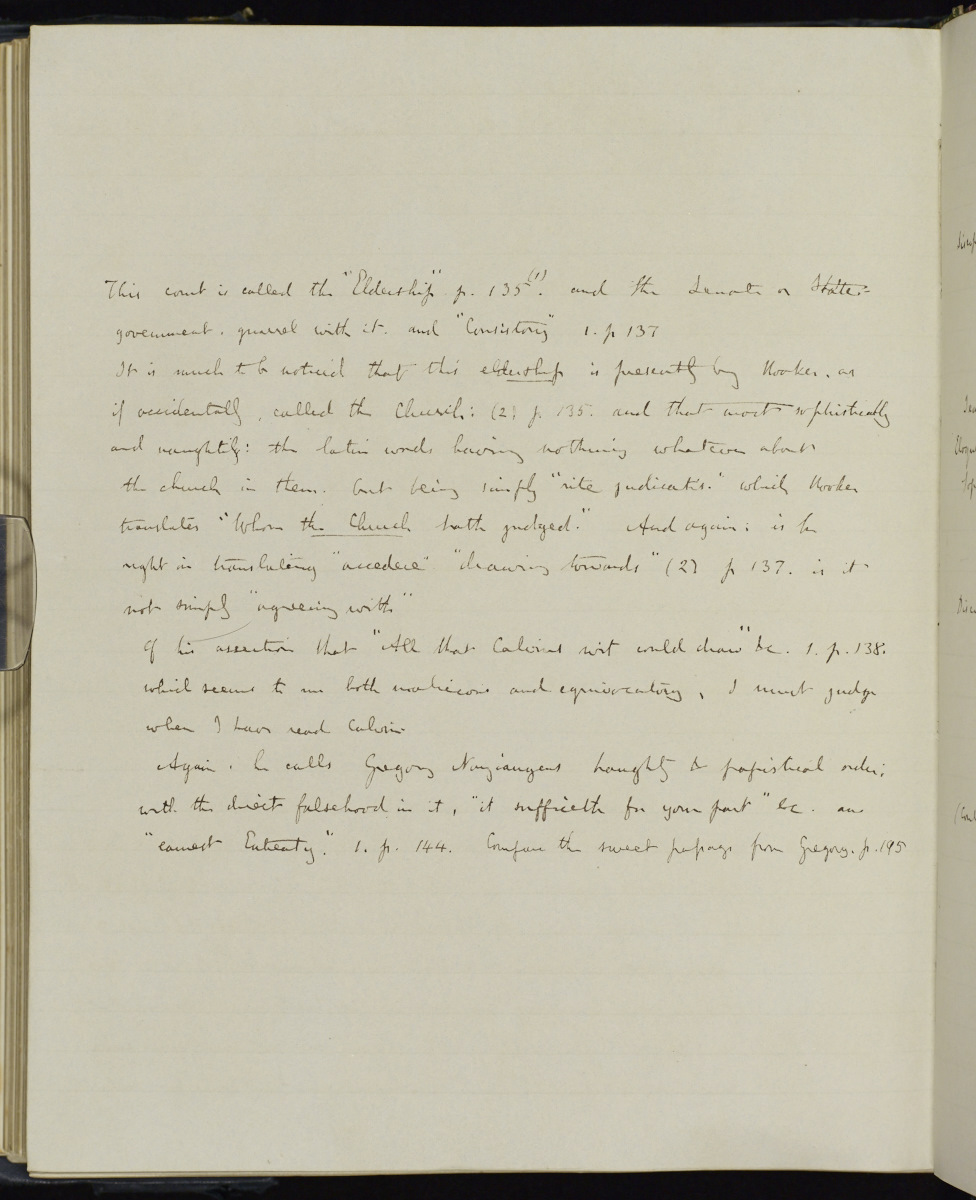 This court is called the "Eldership" p. 135 (1). and the Senate or State-
government. quarrel with it. and "Consistory" 1. p 137
It is much to be noticed that this eldership is presently by Hooker, as
if accidentally, called the Church: (2) p. 135. and that most sophistically
and naughtily: the latin words having nothing whatever about
the church in them. but being simply "rite judicatis." which Hooker
translates "Whom the Church hath judged." And again: is he
right in translating "accedere" "drawing towards" (2) p 137. is it
not simply "agreeing with"
Of his assertion that "All that Calvins wit could draw" &c. 1. p. 138.
which seems to me both malicious and equivocatory, I must judge
when I have read Calvin
Again. he calls Gregory Nazianzens haughty & papistical order;
with the direct falsehood in it, "it sufficeth for your part" &c. an
"earnest Entreaty." 1. p. 144. Compare the sweet passage from Gregory. p. 195